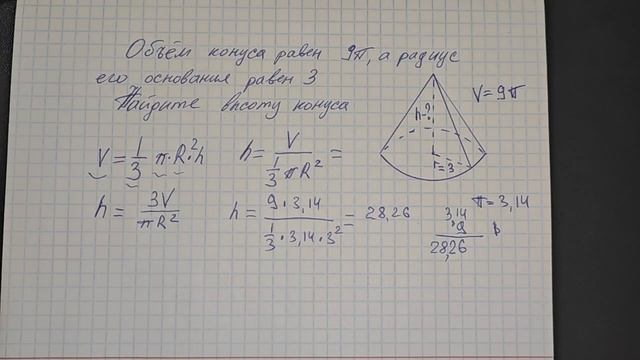 Объём конуса равен 9π, а радиус
его основания равен 3
Найдите высоту конуса
V = 9π
h-?
r=3
V = 1/3 π·R²·h
h = V / (1/3 πR²) =
h = 3V / πR²
h = (9·3,14) / (1/3·3,14·3²) = 28,26
π = 3,14
3,14
·9
28,26